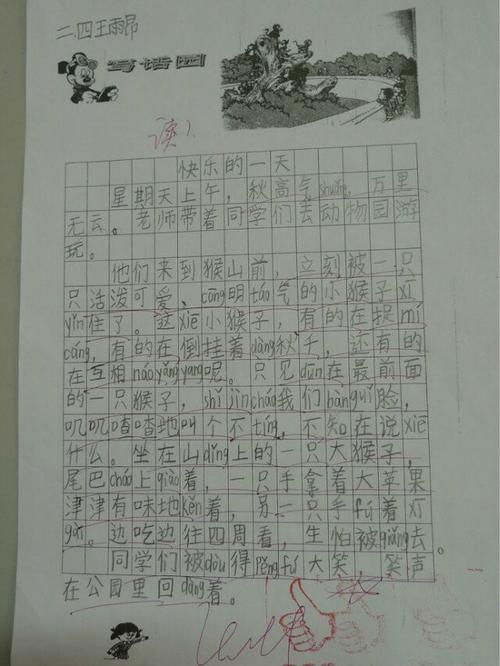 二.四王雨昂
写话园
读1
快乐的一天
星期天上午，秋高气shuǎng，万里
无云。老师带着同学们去动物园游
玩。
他们来到猴山前，立刻被一只
只活泼可爱、cōng明táo气的小猴子xī
yǐn住了。这xiē小猴子，有的在捉mí
cáng，有的在倒挂着dàng秋千，还有的
在互相náo yǎng yang呢。只见dūn在最前面
的一只猴子，shí jīn cháo我们bàn guǐ脸，
叽叽喳喳地叫个不tíng，不知在说xiē
什么。坐在山dǐng上的一只大猴子，
尾巴cháo上qiào着，一只手拿着大苹果
津津有味地kěn着，另一只手fú着
gān。边吃边往四周看，生怕被qiǎng去
同学们被dòu得pěng fù大笑，笑声
在公园里回dàng着。